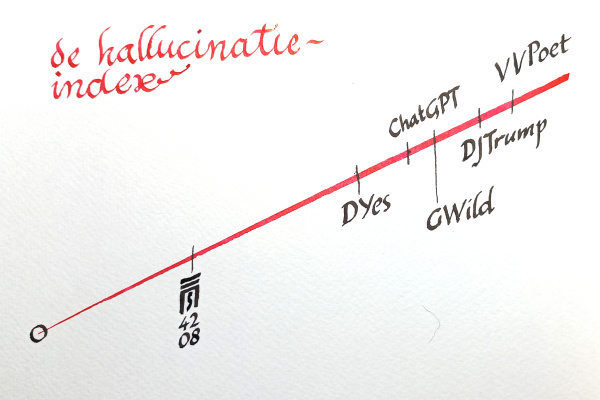 de hallucinatie-
index
VVPoet
ChatGPT
DJTrump
DYes
GWild
42
08